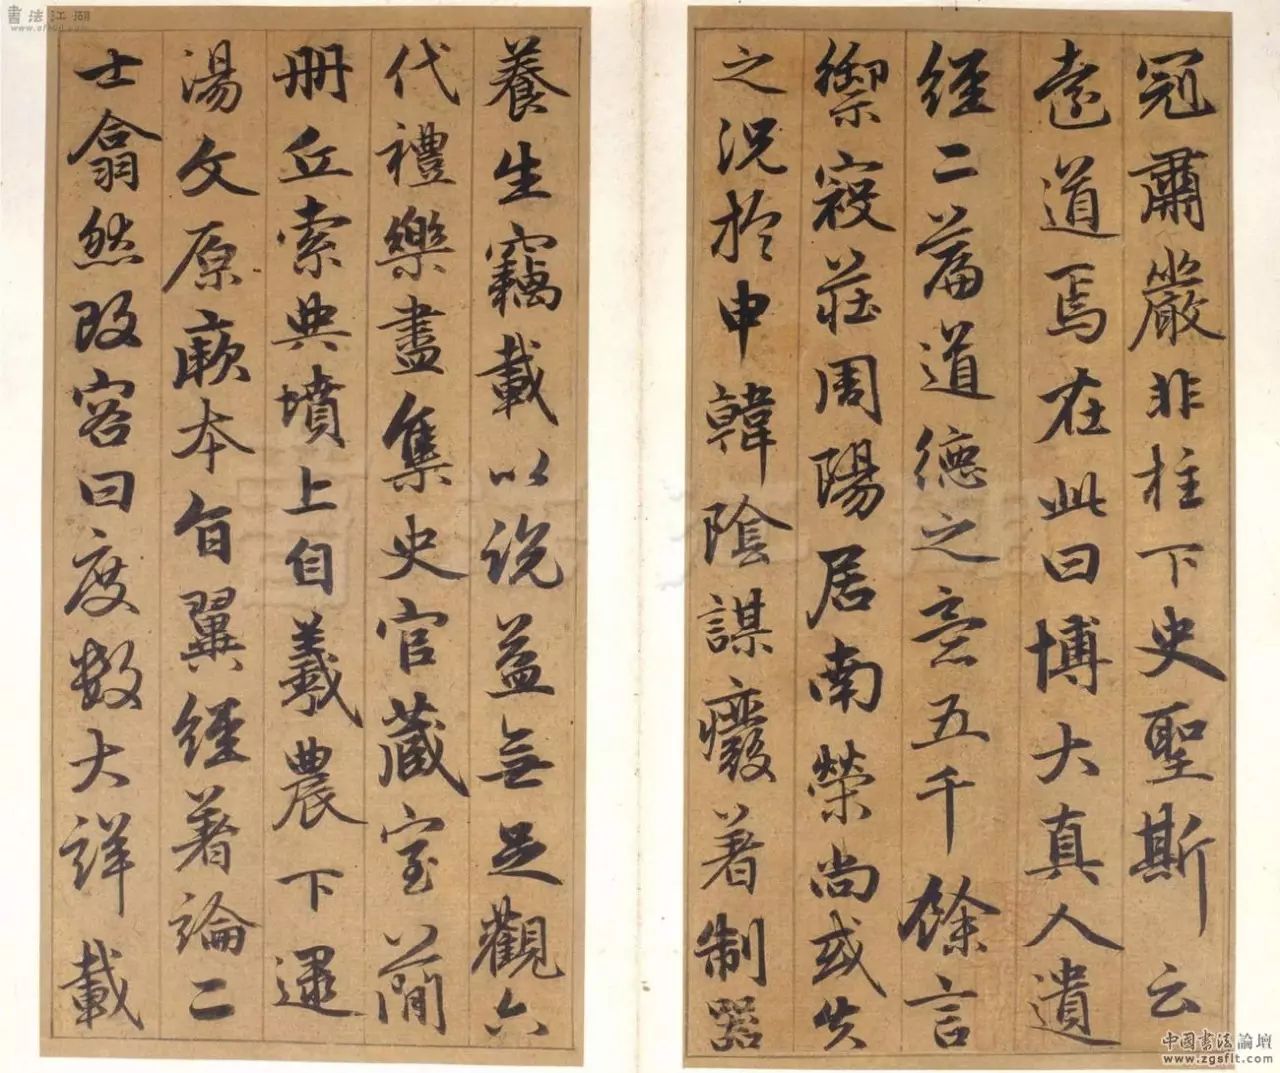 冠肅嚴非柱下史聖斯云
遠道焉在此曰博大真人遺
經二篇道德之意五千餘言
禦寇莊周陽居南榮尚或失
之況於申韓陰謀癈著制器
養生竊載以説益無足觀六
代禮樂盡集史官藏室蕳
冊丘索典墳上自羲農下逮
湯文原厥本旨翼經著論二
士翕然改容曰度數大詳載
書法江湖
中國書法論壇
www.zgsflt.com